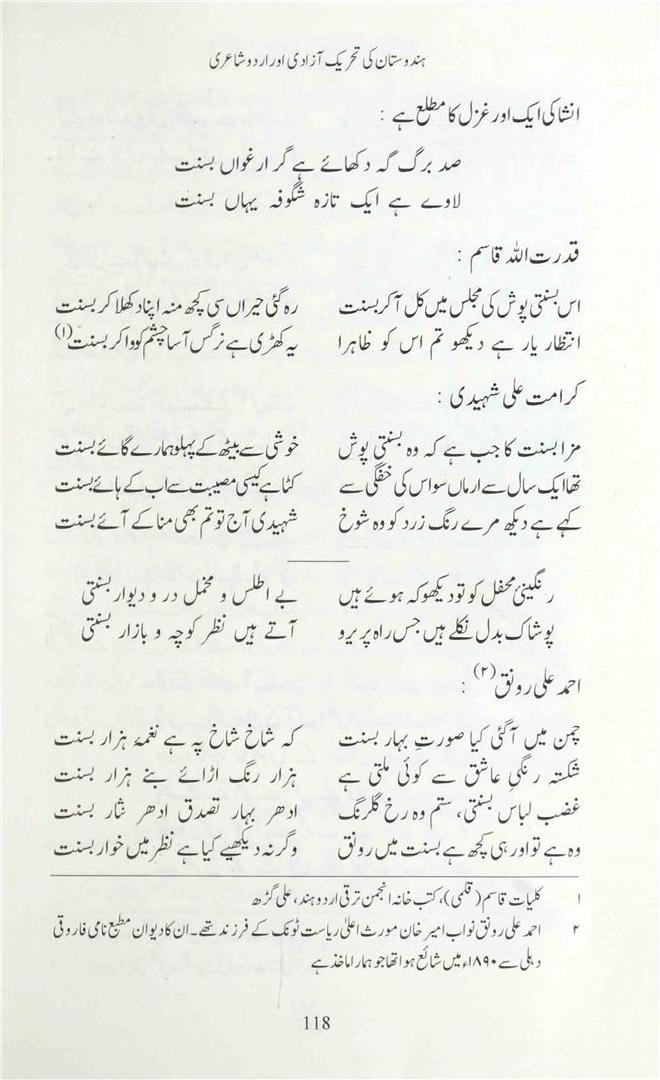 ہندوستان کی تحریک آزادی اور اردو شاعری
انشا کی ایک اور غزل کا مطلع ہے :
صد برگ گہ دکھائے ہے گر ارغواں بسنت
لاوے ہے ایک تازہ شگوفہ یہاں بسنت
قدرت اللہ قاسم :
اس بسنتی پوش کی مجلس میں کل آکر بسنت رہ گئی حیراں سی کچھ منہ اپنا دکھلا کر بسنت
انتظار یار ہے دیکھو تم اس کو ظاہرا یہ کھڑی ہے نرگس آسا چشم کو وا کر بسنت (۱)
کرامت علی شہیدی :
مزا بسنت کا جب ہے کہ وہ بسنتی پوش خوشی سے بیٹھ کے پہلو ہمارے گائے بسنت
تھا ایک سال سے ارماں سو اس کی خفگی سے کٹا ہے کیسی مصیبت سے اب کے ہائے بسنت
کہے ہے دیکھ مرے رنگ زرد کو وہ شوخ شہیدی آج تو تم بھی منا کے آئے بسنت
رنگینیٔ محفل کو تو دیکھو کہ ہوئے ہیں بے اطلس و مخمل در و دیوار بسنتی
پوشاک بدل نکلے ہیں جس راہ پر یرو آتے ہیں نظر کوچہ و بازار بسنتی
احمد علی رونق (۲) :
چمن میں آگئی کیا صورتِ بہار بسنت کہ شاخ شاخ پہ ہے نغمۂ ہزار بسنت
شکستہ رنگیِ عاشق سے کوئی ملتی ہے ہزار رنگ اڑائے بنے ہزار بسنت
غضب لباس بسنتی، ستم وہ رخ گلرنگ ادھر بہار تصدق ادھر نثار بسنت
وہ ہے تو اور ہی کچھ ہے بسنت میں رونق وگرنہ دیکھیے کیا ہے نظر میں خوار بسنت
۱ کلیات قاسم (قلمی)، کتب خانہ انجمن ترقی اردو ہند، علی گڑھ
۲ احمد علی رونق نواب امیر خان مورث اعلیٰ ریاست ٹونک کے فرزند تھے۔ ان کا دیوان مطبع نامی فاروقی
دہلی سے ۱۸۹۰ء میں شائع ہوا تھا جو ہمارا ماخذ ہے
118